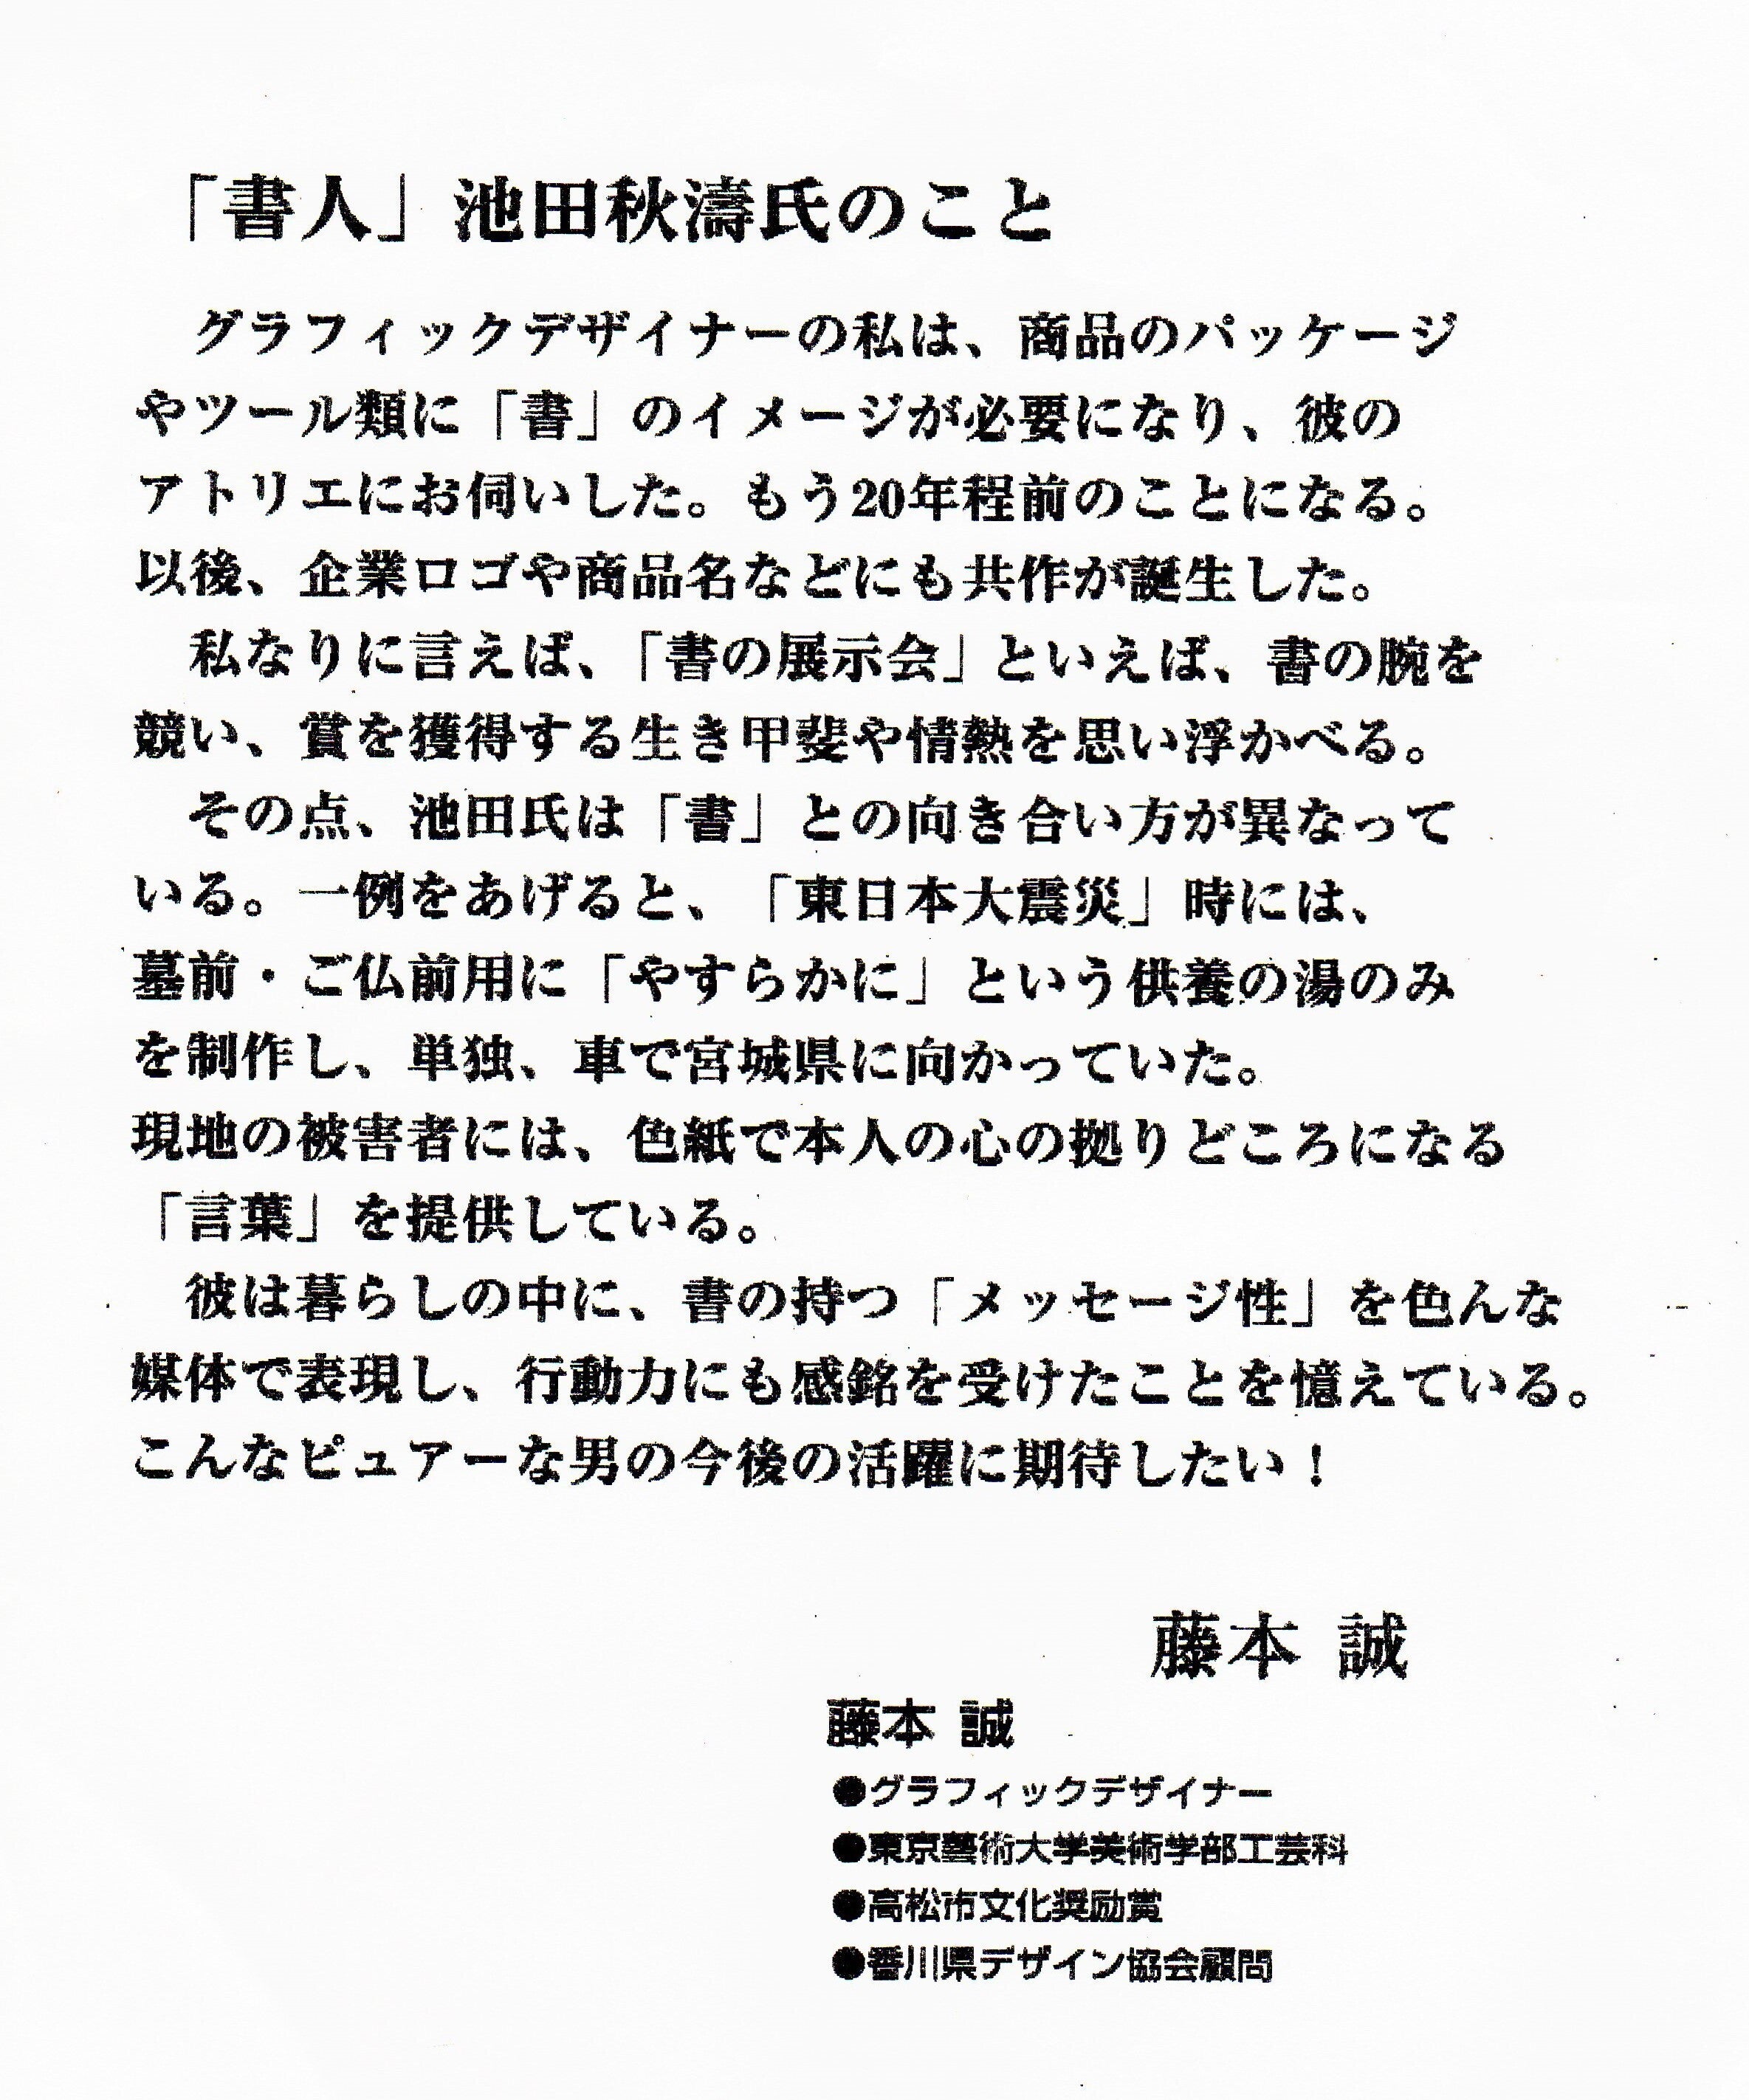 「書人」池田秋濤氏のこと
グラフィックデザイナーの私は、商品のパッケージ
やツール類に「書」のイメージが必要になり、彼の
アトリエにお伺いした。もう20年程前のことになる。
以後、企業ロゴや商品名などにも共作が誕生した。
私なりに言えば、「書の展示会」といえば、書の腕を
競い、賞を獲得する生き甲斐や情熱を思い浮かべる。
その点、池田氏は「書」との向き合い方が異なって
いる。一例をあげると、「東日本大震災」時には、
墓前・ご仏前用に「やすらかに」という供養の湯のみ
を制作し、単独、車で宮城県に向かっていた。
現地の被害者には、色紙で本人の心の拠りどころになる
「言葉」を提供している。
彼は暮らしの中に、書の持つ「メッセージ性」を色んな
媒体で表現し、行動力にも感銘を受けたことを憶えている。
こんなピュアーな男の今後の活躍に期待したい！
藤本 誠
藤本 誠
●グラフィックデザイナー
●東京藝術大学美術学部工芸科
●高松市文化奨励賞
●香川県デザイン協会顧問